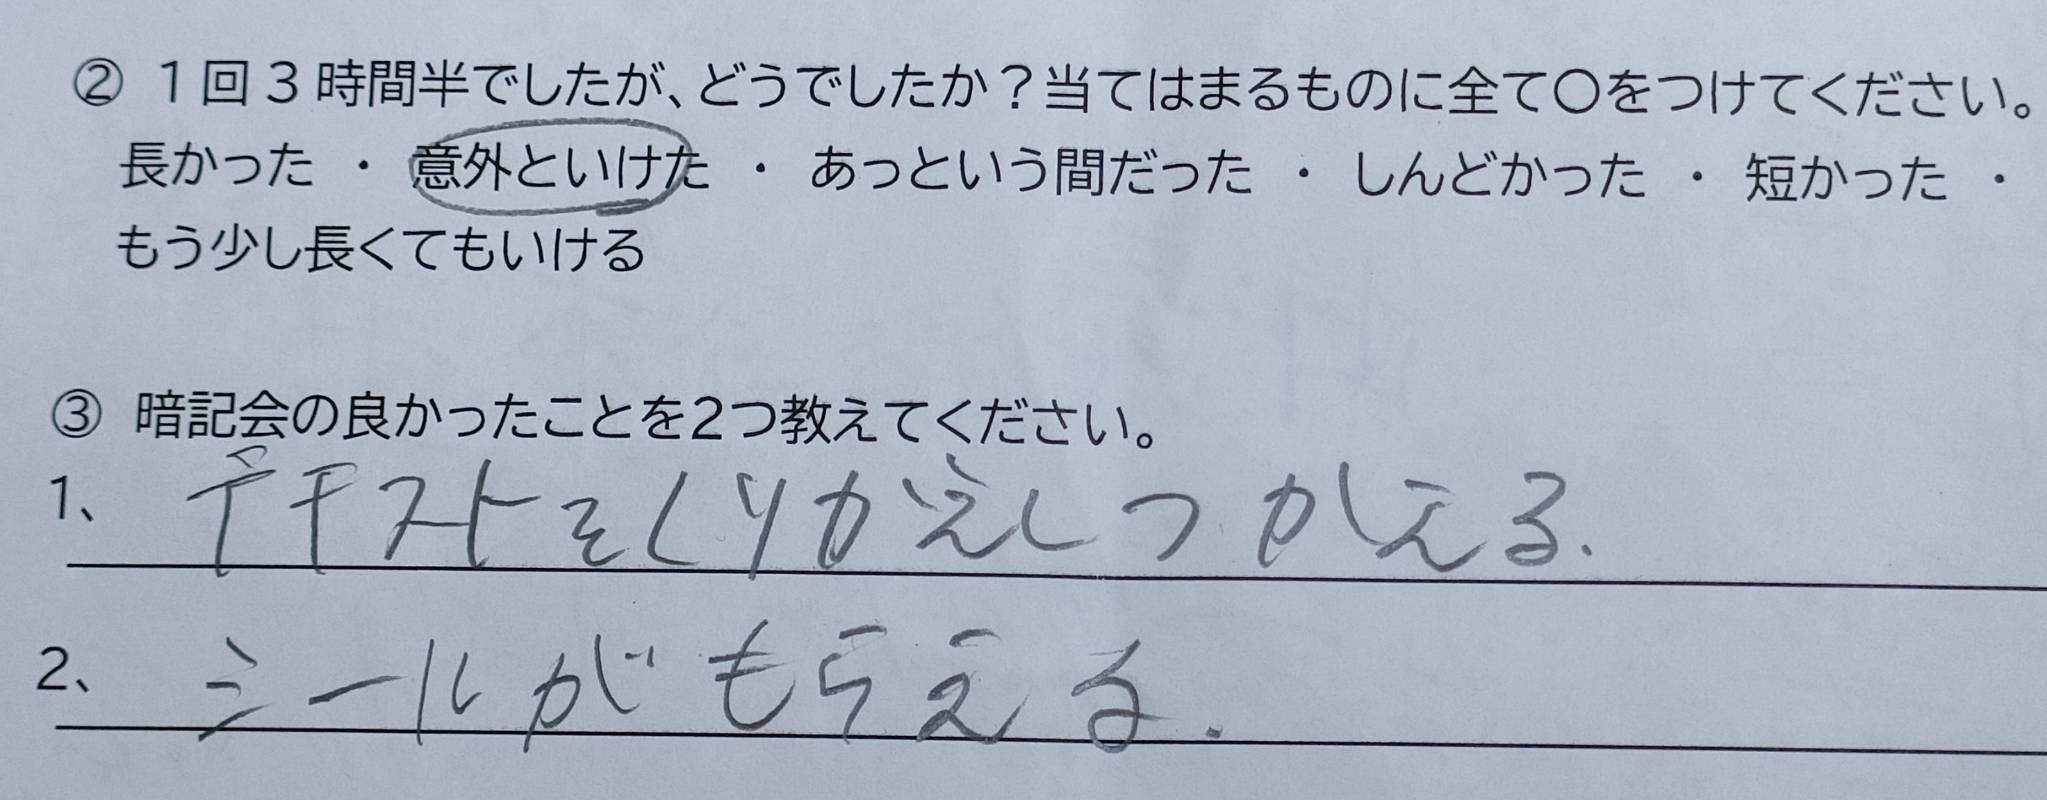 ② 1回3時間半でしたが、どうでしたか？当てはまるものに全て〇をつけてください。
長かった ・ 意外といけた ・ あっという間だった ・ しんどかった ・ 短かった ・
もう少し長くてもいける
③ 暗記会の良かったことを2つ教えてください。
1、 テキストをくりかえしつかえる.
2、 シールがもらえる.